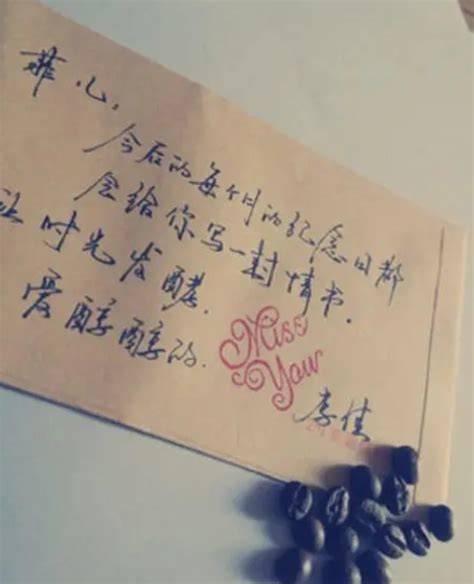 菲心，
今后的每个月的纪念日都
会给你写一封情书．
让时光发酵．
爱醇醇的．
Miss
You
李佳